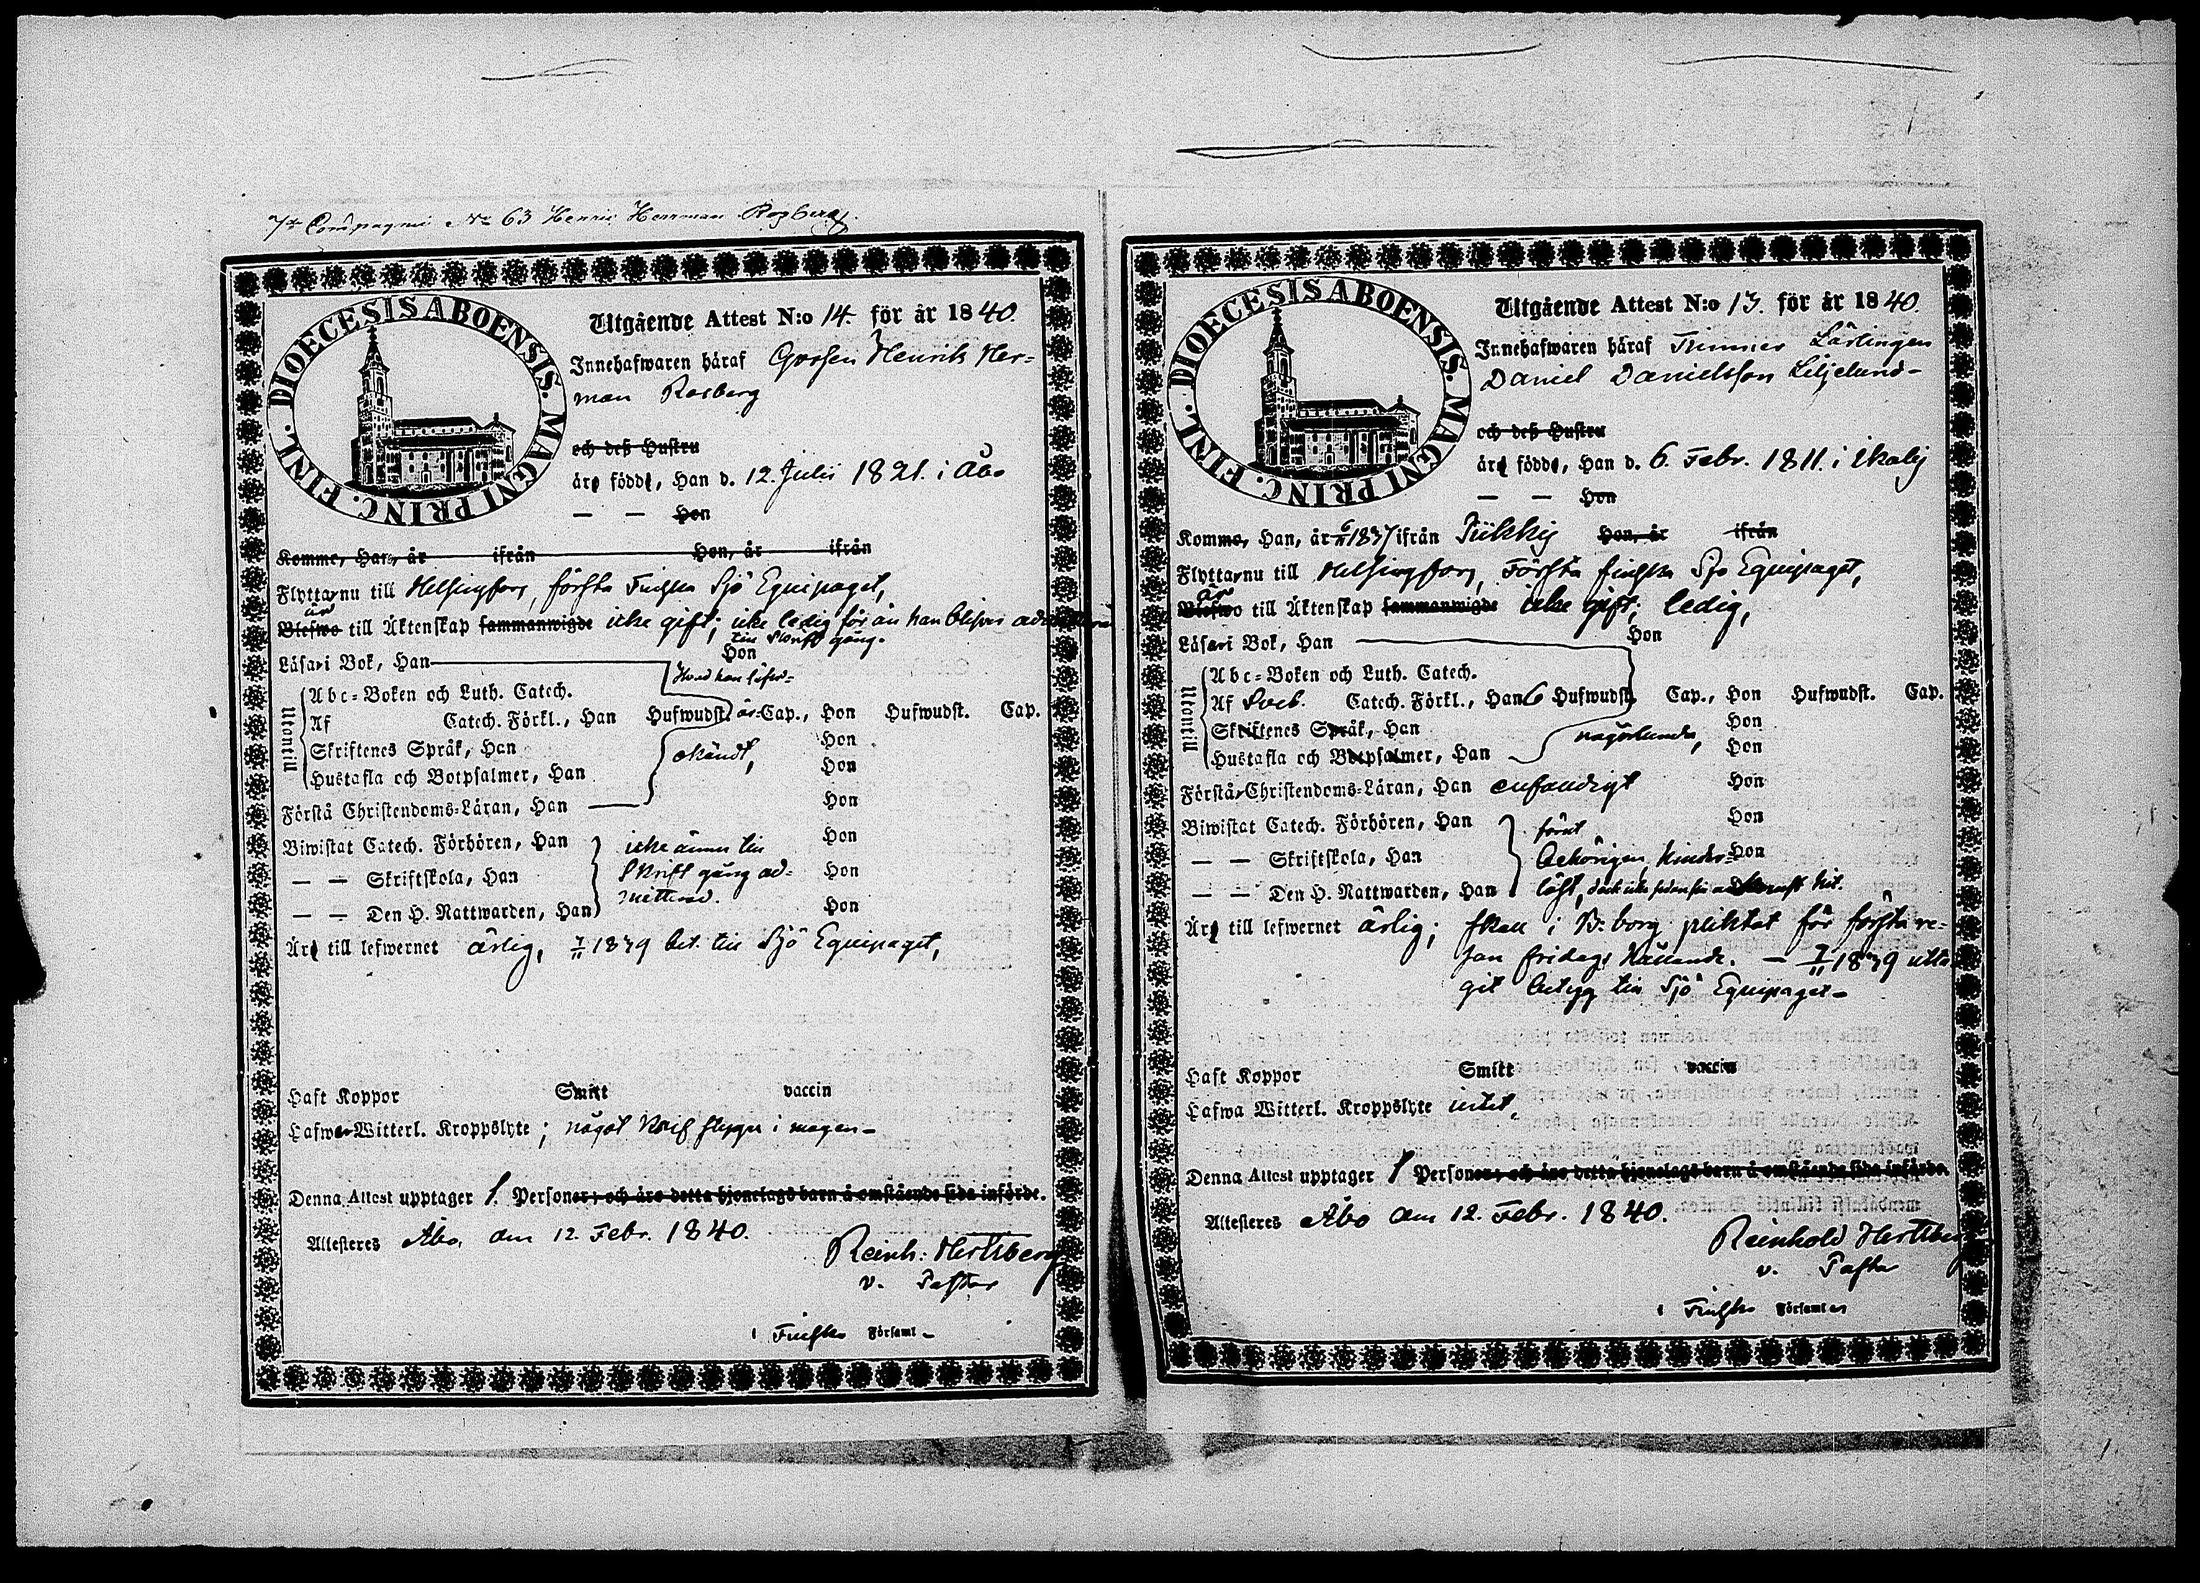 7de Compagnie No 63 Henric Herrman Rosberg.
DIOECESIS ABOENSIS. MAGNI PRINC. FINL.
Utgående Attest N:o 14. för år 1840
Innehafwaren häraf Gossen Henrik Her-
man Rosberg
och deß Hustru
äre födde, Han d. 12. Julii 1821. i Åbo
— — Hon
Komme, Han, år ifrån Hon, år ifrån
Flytta nu till Helsingfors, första Finska Sjö Equipaget,
är
Blefwo till Äktenskap sammanwigde icke gift; icke ledig för än han blifvit
till Skriftgång.
Läsa i Bok, Han Hon
Hvad han läser
Utontill
Abc-Boken och Luth. Catech.
Af Catech. Förkl., Han Hufwudst. är Cap., Hon Hufwudst. Cap.
Skriftenes Språk, Han Hon
okändt,
Hustafla och Botpsalmer, Han Hon
Förstå Christendoms-Läran, Han Hon
Biwistat Catech. Förhören, Han icke ännu till Hon
— — Skriftskola, Han Skriftgång ad- Hon
— — Den H. Nattwarden, Han mitterad. Hon
Äre till lefwernet ärlig, 7/11 1839 bet. till Sjö Equipaget,
Haft Koppor Smitt vaccin
Hafwa Witterl. Kroppslyte; något i magen
Denna Attest upptager 1 Personer; och äro detta hjonelags barn å omstående sida införde.
Attesteres Åbo, den 12. Febr. 1840.
Reinh: Hertzberg
v. Pastor
i Finska Församl
DIOECESIS ABOENSIS. MAGNI PRINC. FINL.
Utgående Attest N:o 13. för år 1840.
Innehafwaren häraf Lärlingen
Daniel Danielsson Liljelund
och deß Hustru
äre födde, Han d. 6. Febr. 1811. i Ikalis
— — Hon
Komme, Han, år 6/11 1837 ifrån Pükkis Hon, år ifrån
Flytta nu till Helsingfors, Första finska Sjö Equipaget,
är
Blefwo till Äktenskap sammanwigde icke gift; ledig,
Läsa i Bok, Han Hon
Utontill
Abc-Boken och Luth. Catech.
Af Sveb. Catech. Förkl., Han 6 Hufwudst. Cap., Hon Hufwudst. Cap.
Skriftenes Språk, Han Hon
någorlunda,
Hustafla och Botpsalmer, Han Hon
Förstå Christendoms-Läran, Han enfaldigt Hon
Biwistat Catech. Förhören, Han förut Hon
— — Skriftskola, Han behörigen, hinder- Hon
— — Den H. Nattwarden, Han löst, dock icke sedan hit.
Äre till lefwernet ärlig; skall i B:borg pliktat för första re-
san fridags hållande. — 7/11 1839 utta-
git betyg till Sjö Equipaget
Haft Koppor Smitt vaccin
Hafwa Witterl. Kroppslyte intet,
Denna Attest upptager 1 Personer; och äro detta hjonelags barn å omstående sida införde.
Attesteres Åbo den 12. Febr. 1840.
Reinhold Hertzberg
v. Pastor
i Finska Församl en